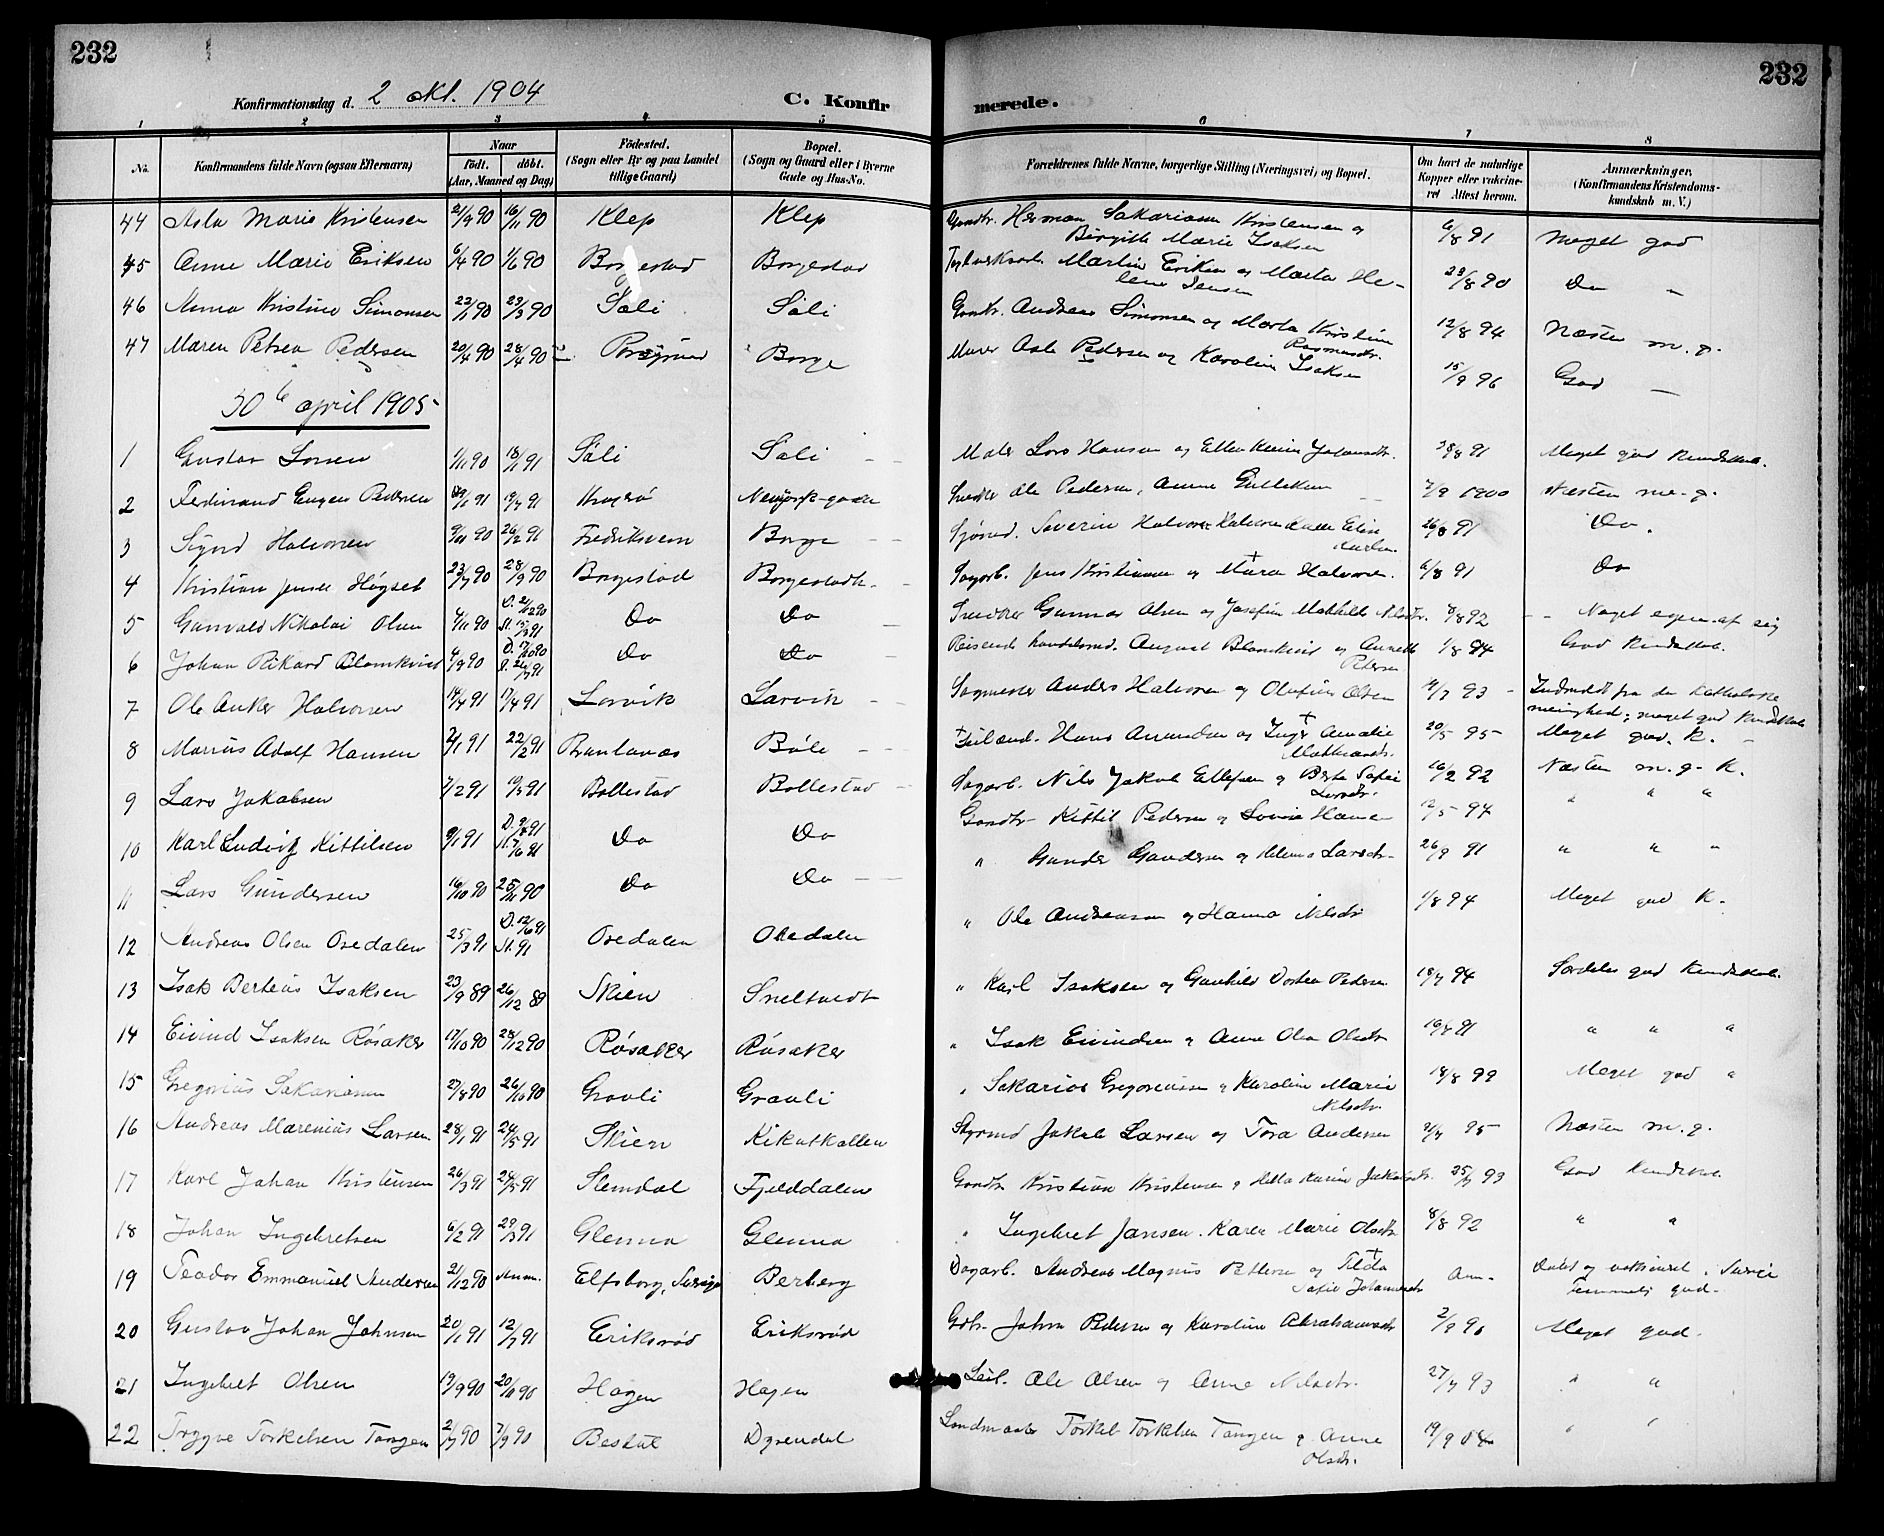 232
232
Konfirmationsdag d. 2 okt. 1904
C. Konfirmerede.
1 2 3 4 5 6 7 8
No. Konfirmandens fulde Navn (ogsaa Efternavn) Naar født. døbt. (Aar, Maaned og Dag) Fødested. (Sogn eller By og paa Landet tillige Gaard) Bopæl. (Sogn og Gaard eller i Byerne Gade og Hus-No. Forældrenes fulde Navne, borgerlige Stilling (Næringsvei) og Bopæl. Om havt de naturlige Kopper eller vakcineret Attest herom. Anmærkninger. (Konfirmandens Kristendomskundskab m. V.)
44 Asla Marie Kristensen 2/9 90 16/11 90 Klep Klep Gaardbr. Herman Sakariasen Kristensen og Birgitte Marie Isaksen 6/8 91 Meget god
45 Anne Marie Eriksen 6/4 90 1/6 90 Borgestad Borgestad Martin Eriksen og Marta Helene Jensen 23/8 90 Do
46 Anna Kristine Simonsen 22/1 90 23/3 90 Søli Søli Gaardbr. Andreas Simonsen og Marta Kristine Rasmusdtr. 12/8 94 Næsten m. g.
47 Maren Petrea Pedersen 20/4 90 28/4 90 Porsgrund Borge Murer Asle Pedersen og Karoline Isaksen 15/9 96 God
30te april 1905
1 Gustav Larsen 1/11 90 18/1 91 Søli Søli Maler Lars Hansen og Ellen Karine Johannesdtr. 28/8 91 Meget god Kundskab.
2 Ferdinand Eugen Pedersen 91 19/4 91 Kragerø Newyork-gaden Snedker Ole Pedersen, Anne Gulleksen 7/9 1900 Næsten m. g.
3 Sigurd Halvorsen 90 26/2 91 Fredriksvern Borge Sjømd. Severin Halvorsen 26/8 91 Do.
4 Kristian Jensen Høgset 23/7 90 28/9 90 Borgestad Borgestadh. Sagarb. Jens Kristiansen og Maren Halvorsen. 6/8 91 Do
5 Gunvald Nikolai Olsen 4/11 90 Do Do Snedker Gunnar Olsen og Josefine Mathilde Nilsdtr. 8/8 92 Noget egen af sig
6 Johan Rikard Blomkvist 4/9 90 Do Do Reisende handelsmd. August Blomkvist og Annette Pedersen 1/8 94 God Kundskab.
7 Ole Anker Halvorsen 14/4 91 17/4 91 Larvik Larvik Sagmester Anders Halvorsen og Olufine Olsen 4/7 93 Indmeldt fra den katholske menighed; meget god Kundskab
8 Marius Adolf Hansen 2/1 91 22/2 91 Bøle Hans Amundsen og Inger Amalie 20/5 95 Meget god. K.
9 Lars Jakobsen 7/2 91 19/3 91 Bollestad Bollestad Sagarb. Nils Jakob Ellefsen og Berte Sofie Larsdtr. 16/2 92 Næsten m. g. K.
10 Karl Ludvig Kittilsen 9/1 91 Do Do Gaardbr. Kittil Pedersen og Lovise Hansen 12/5 94 " " "
11 Lars Gundersen 16/10 90 25/11 90 Do Do " Gunder Gundersen og Helene Larsdtr. 26/9 91 " " "
12 Andreas Olsen Osedalen 25/3 91 D. 12/6 91 St. 91 Osedalen Osedalen " Ole Andreassen og Hanna Nilsdtr 1/8 94 Meget god K.
13 Isak Berteus Isaksen 23/9 89 26/12 89 Skien Sneltvedt " Karl Isaksen og Gunhild Dortea Pedersen 18/7 94 Særdeles god Kundskab.
14 Eivind Isaksen Røsaker 17/10 90 28/12 90 Røsaker Røsaker " Isak Eivindsen og Anne Olea Olsdtr 91 " " "
15 Gregorius Sakariasen 27/8 90 26/10 90 Gravli Gravli " Sakarias Gregoriussen og Karoline Marie Nilsdtr. 18/8 99 Meget god "
16 Andreas Marenius Larsen 28/1 91 24/5 91 Skien Kikutkollen Styrmd Jakob Larsen og Tora Andersen 21/7 95 Næsten m. g.
17 Karl Johan Kristensen 26/3 91 24/5 91 Slemdal Fjelddalen Gaardbr. Kristian Kristensen og Karine Jakobsdtr. 25/7 93 God Kundskab
18 Johan Ingebretsen 6/2 91 29/3 91 Glenna Glenna " Ingebret Jansen. Karen Marie Olsdtr 8/8 92 " "
19 Teodor Emmanuel Andersen 21/12 90 Anm. Elfsborg, Sverige Berberg Dagarb. Andreas Magnus Pettersen og Tilda Sofie Johannesdtr Anm. Døbt og vakcineret i Sverige Temmelig god.
20 Gustav Johan Johnsen 20/1 91 12/7 91 Eriksrød Eriksrød Gbr. John Pedersen og Karoline Abrahamsdtr 2/9 96 Meget god.
21 Ingebret Olsen 19/9 90 20/11 90 Hagen Hagen Leil. Ole Olsen og Anne Nilsdtr. 27/7 93 " "
22 Trygve Torkelsen Tangen 2/7 90 7/9 90 Bestul Dyrendal Landmaaler Torkel Torkelsen Tangen og Anne Olsdtr. 19/9 04 " "